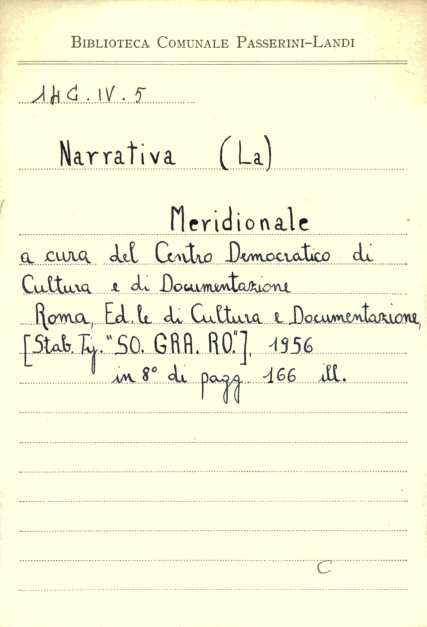 BIBLIOTECA COMUNALE PASSERINI-LANDI
14 G. IV. 5
Narrativa (La)
Meridionale
a cura del Centro Democratico di
Cultura e di Documentazione
Roma, Ed.le di Cultura e Documentazione,
[Stab. Ty. "SO. GRA. RO."], 1956
in 8° di pagg. 166 ill.
C